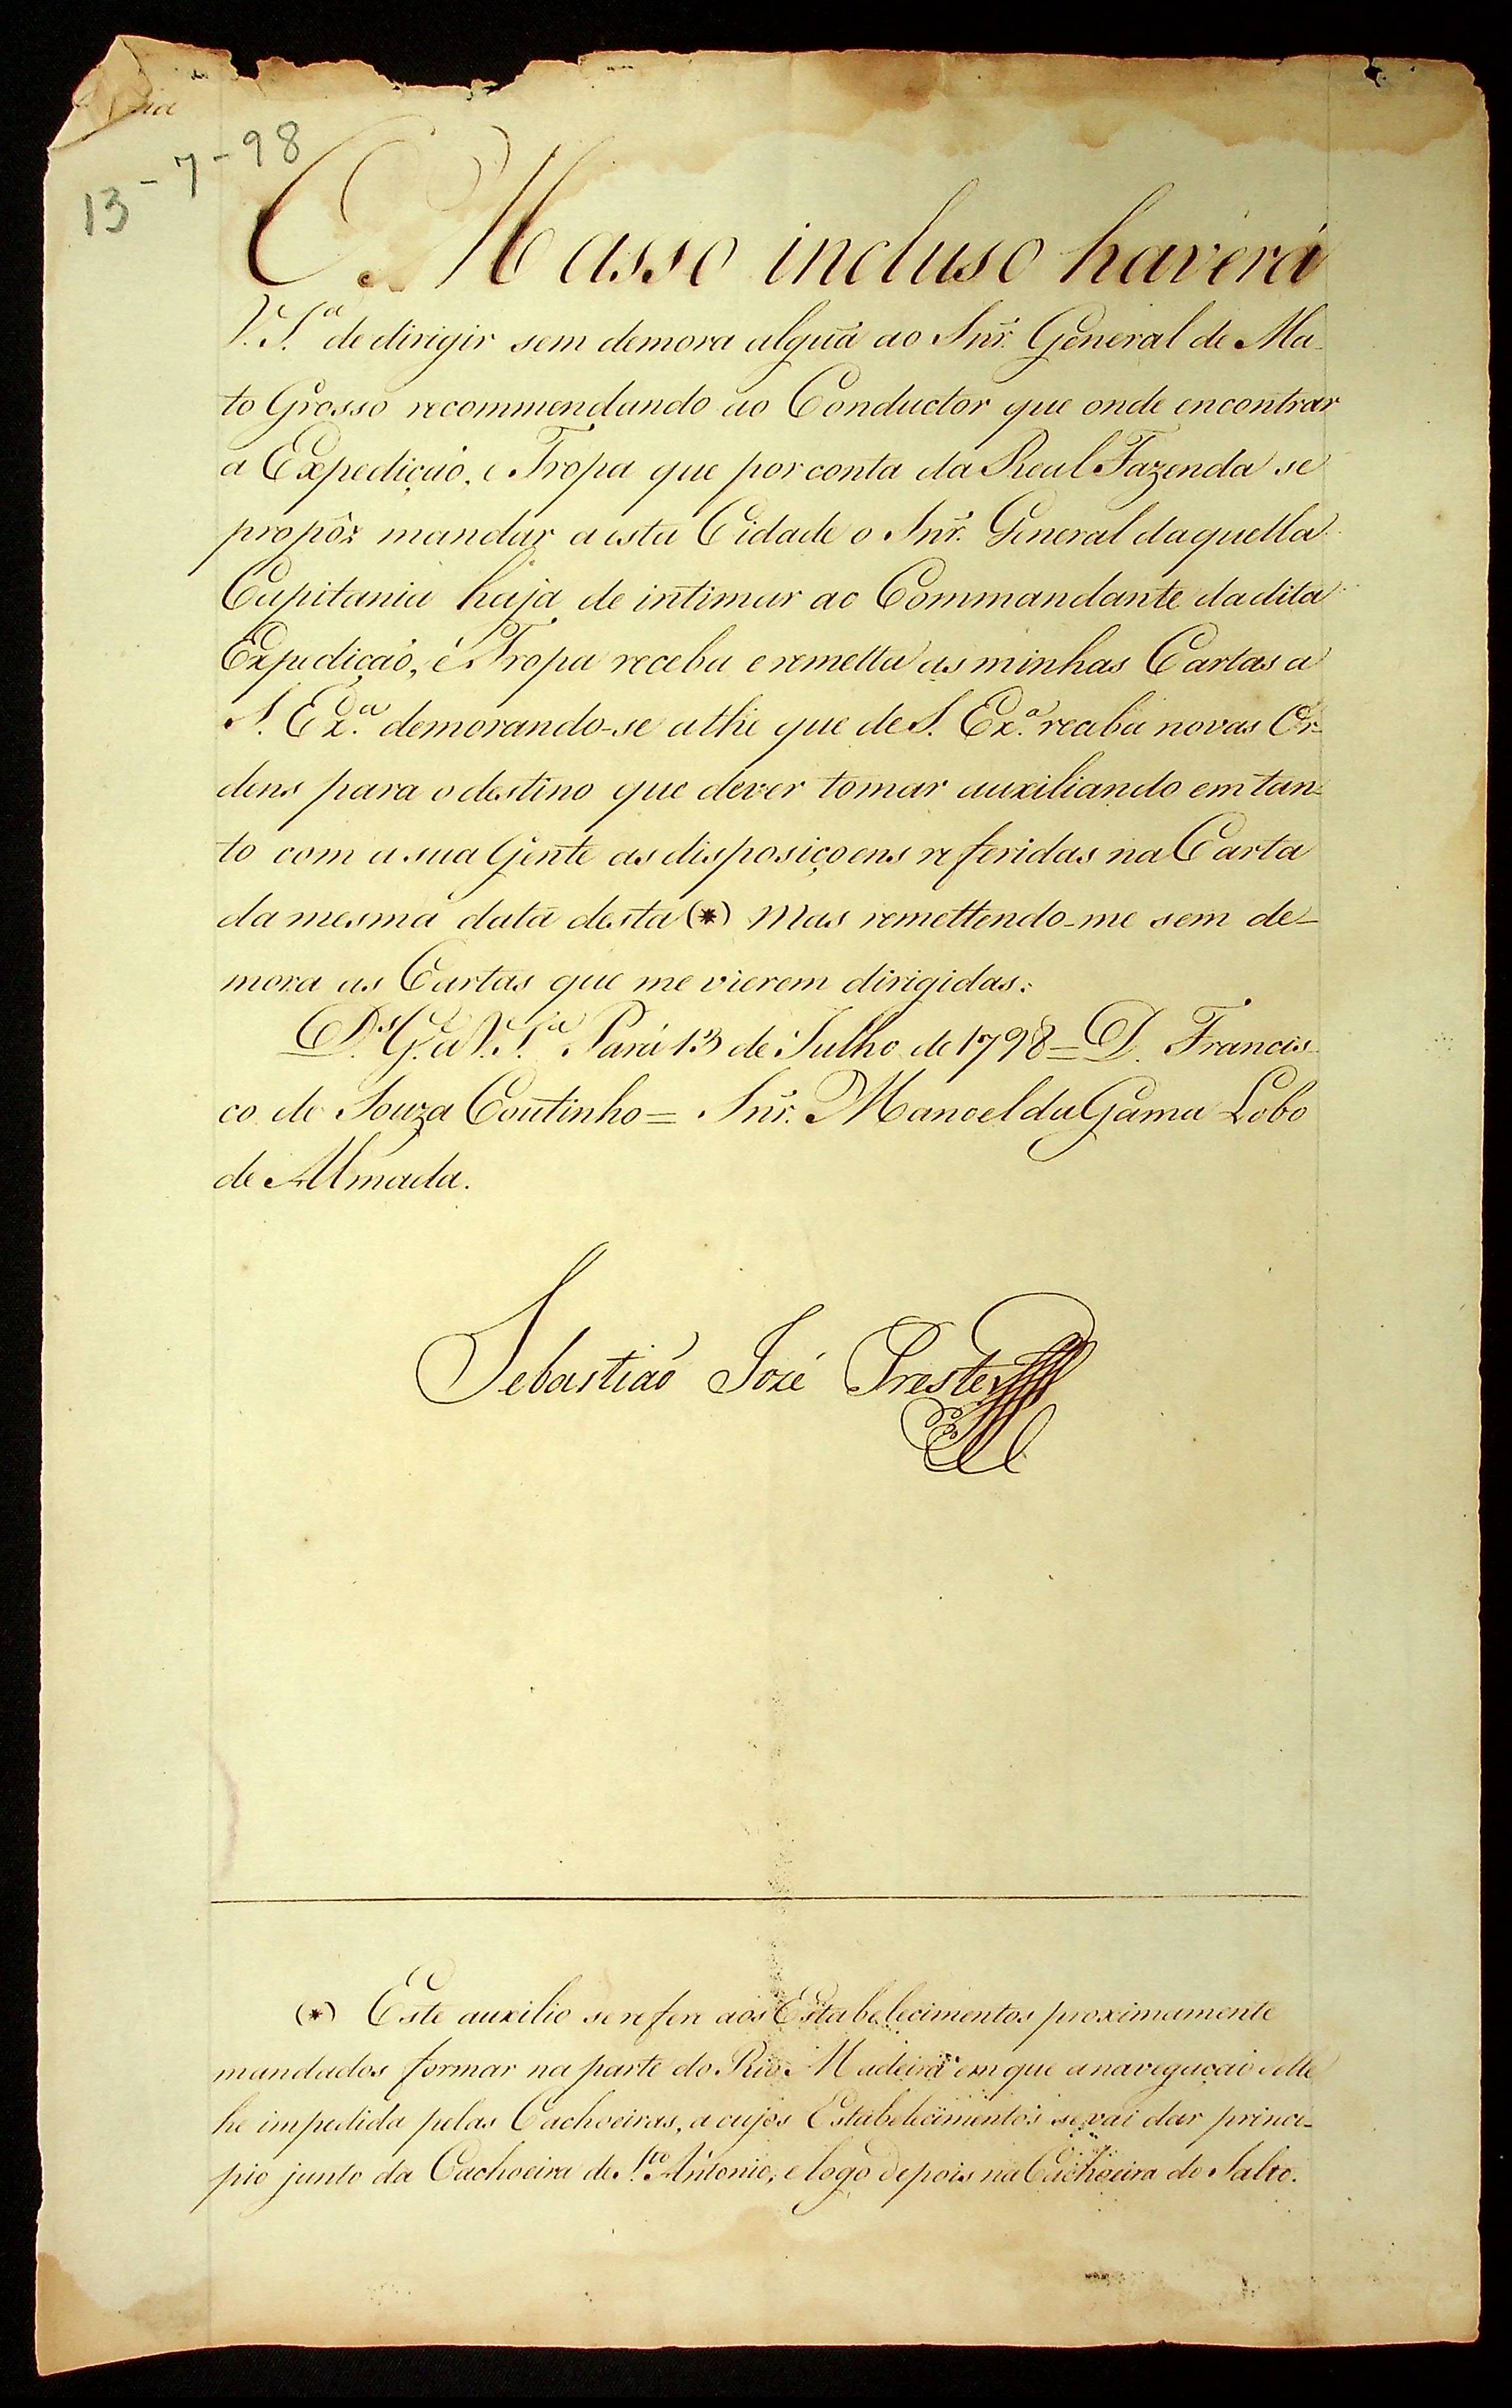 13-7-98
O Masso incluso haverá
V. S.ª de dirigir sem demora algũa ao Snr̃. General de Ma-
to Grosso recommendando ao Conductor que onde encontrar
a Expedição, e Tropa que por conta da Real Fazenda se
propôz mandar a esta Cidade o Snr̃. General daquella
Capitania haja de intimar ao Commandante da dita
Expedição, e Tropa receba e remetta as minhas Cartas a
S. Ex.ª demorando-se athe que de S. Ex.ª receba novas Or-
dens para o destino que dever tomar auxiliando em tan-
to com a sua Gente as disposiçoens referidas na Carta
da mesma data desta (*) mas remettendo-me sem de-
mora as Cartas que me vierem dirigidas:
D.s G.e a V. S.ª Pará 13 de Julho de 1798 = D. Francis-
co de Souza Coutinho = Snr̃. Manoel da Gama Lobo
de Almada.
Sebastiaõ Jozé Prestes
(*) Este auxilio se refere aos Estabelecimentos proximamente
mandados formar na parte do Rio Madeira em que a navegação delle
he impedida pelas Cachoeiras, a cujos Estabelecimentos se vai dar princi-
pio junto da Cachoeira de S.to Antonio, e logo depois na Cachoeira do Salto.